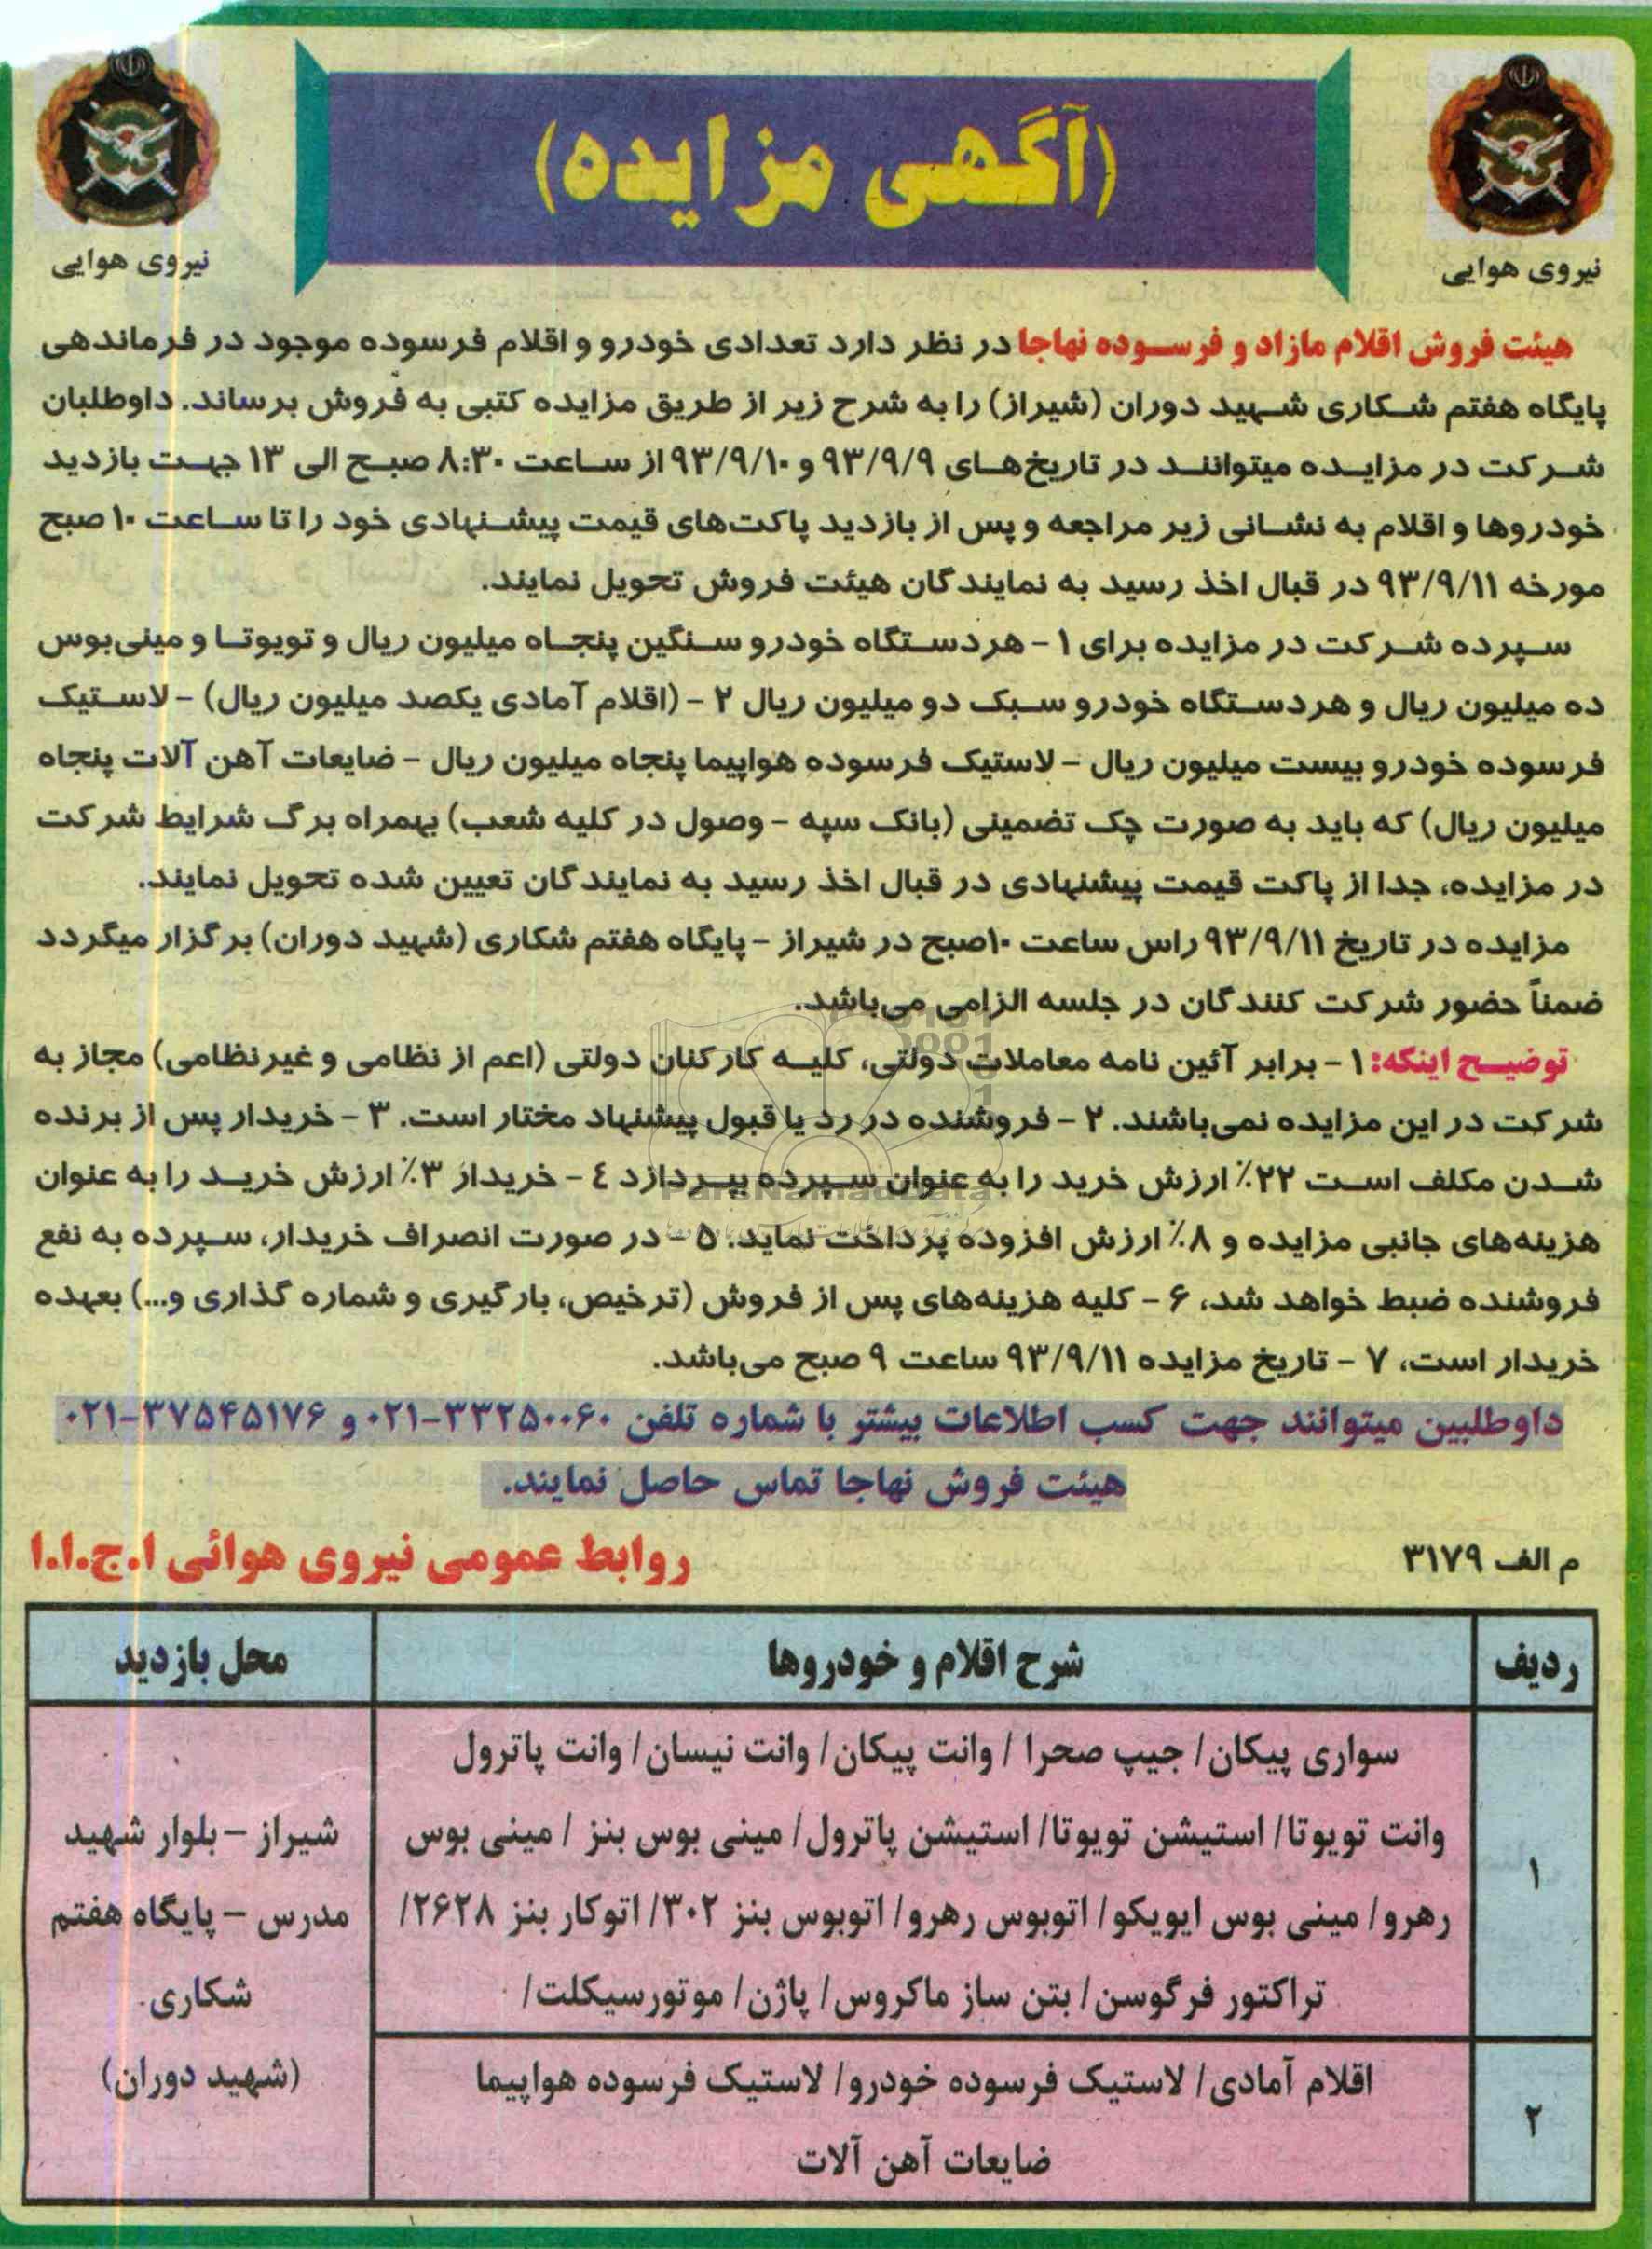 (آگهی مزایده)
نیروی هوایی
نیروی هوایی
هیئت فروش اقلام مازاد و فرسوده نهاجا در نظر دارد تعدادی خودرو و اقلام فرسوده موجود در فرماندهی
پایگاه هفتم شکاری شهید دوران (شیراز) را به شرح زیر از طریق مزایده کتبی به فروش برساند. داوطلبان
شرکت در مزایده میتوانند در تاریخ‌های ۹۳/۹/۹ و ۹۳/۹/۱۰ از ساعت ۸:۳۰ صبح الی ۱۳ جهت بازدید
خودروها و اقلام به نشانی زیر مراجعه و پس از بازدید پاکت‌های قیمت پیشنهادی خود را تا ساعت ۱۰ صبح
مورخه ۹۳/۹/۱۱ در قبال اخذ رسید به نمایندگان هیئت فروش تحویل نمایند.
سپرده شرکت در مزایده برای ۱ - هر دستگاه خودرو سنگین پنجاه میلیون ریال و تویوتا و مینی‌بوس
ده میلیون ریال و هر دستگاه خودرو سبک دو میلیون ریال ۲ - (اقلام آمادی یکصد میلیون ریال) - لاستیک
فرسوده خودرو بیست میلیون ریال - لاستیک فرسوده هواپیما پنجاه میلیون ریال - ضایعات آهن آلات پنجاه
میلیون ریال) که باید به صورت چک تضمینی (بانک سپه - وصول در کلیه شعب) بهمراه برگ شرایط شرکت
در مزایده، جدا از پاکت قیمت پیشنهادی در قبال اخذ رسید به نمایندگان تعیین شده تحویل نمایند.
مزایده در تاریخ ۹۳/۹/۱۱ راس ساعت ۱۰صبح در شیراز - پایگاه هفتم شکاری (شهید دوران) برگزار میگردد
ضمناً حضور شرکت کنندگان در جلسه الزامی می‌باشد.
توضیح اینکه: ۱ - برابر آئین نامه معاملات دولتی، کلیه کارکنان دولتی (اعم از نظامی و غیرنظامی) مجاز به
شرکت در این مزایده نمی‌باشند. ۲ - فروشنده در رد یا قبول پیشنهاد مختار است. ۳ - خریدار پس از برنده
شدن مکلف است ۲۲٪ ارزش خرید را به عنوان سپرده بپردازد ٤ - خریدار ۳٪ ارزش خرید را به عنوان
هزینه‌های جانبی مزایده و ۸٪ ارزش افزوده پرداخت نماید. ۵ - در صورت انصراف خریدار، سپرده به نفع
فروشنده ضبط خواهد شد، ۶ - کلیه هزینه‌های پس از فروش (ترخیص، بارگیری و شماره گذاری و...) بعهده
خریدار است، ۷ - تاریخ مزایده ۹۳/۹/۱۱ ساعت ۹ صبح می‌باشد.
داوطلبین میتوانند جهت کسب اطلاعات بیشتر با شماره تلفن ۳۳۲۵۰۰۶۰-۰۲۱ و ۳۷۵۴۵۱۷۶-۰۲۱
هیئت فروش نهاجا تماس حاصل نمایند.
م الف ۳۱۷۹
روابط عمومی نیروی هوائی ا.ج.ا.ا
ردیف
شرح اقلام و خودروها
محل بازدید
۱
سواری پیکان/ جیپ صحرا / وانت پیکان/ وانت نیسان/ وانت پاترول
وانت تویوتا/ استیشن تویوتا/ استیشن پاترول/ مینی بوس بنز / مینی بوس
رهرو/ مینی بوس ایویکو/ اتوبوس رهرو/ اتوبوس بنز ۳۰۲/ اتوکار بنز ۲۶۲۸/
تراکتور فرگوسن/ بتن ساز ماکروس/ پاژن/ موتورسیکلت/
شیراز - بلوار شهید
مدرس - پایگاه هفتم
شکاری
(شهید دوران)
۲
اقلام آمادی/ لاستیک فرسوده خودرو/ لاستیک فرسوده هواپیما
ضایعات آهن آلات
ParsNamadData